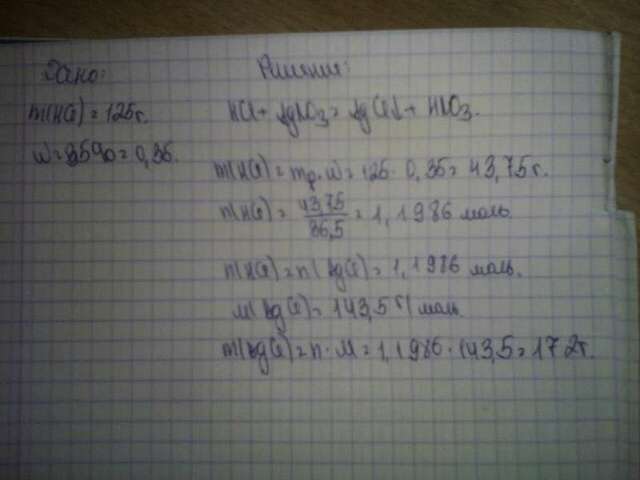 Дано:
Решение:
m(HCl) = 125г.
HCl + AgNO3 = AgCl↓ + HNO3.
w = 35% = 0,35.
m(HCl) = mр · w = 125 · 0,35 = 43,75г.
n(HCl) = 43,75/36,5 = 1,1986 моль
n(HCl) = n(AgCl) = 1,1986 моль.
M(AgCl) = 143,5 г/моль.
m(AgCl) = n · M = 1,1986 · 143,5 = 172г.